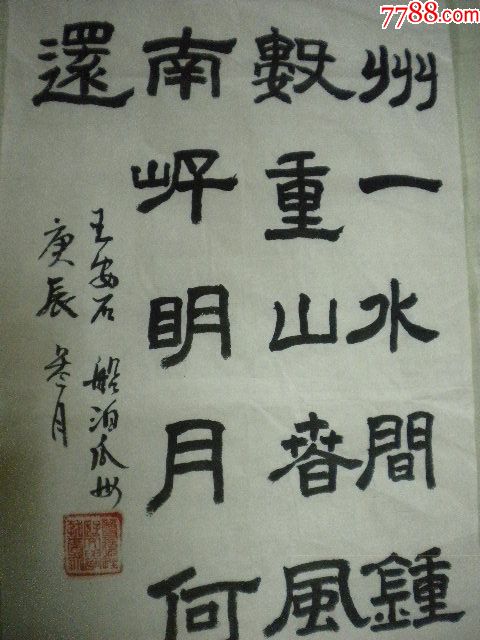 7788.com
州一水間鍾
數重山春風
南岸明月何
還
王安石 船泊瓜州
庚辰 叁月